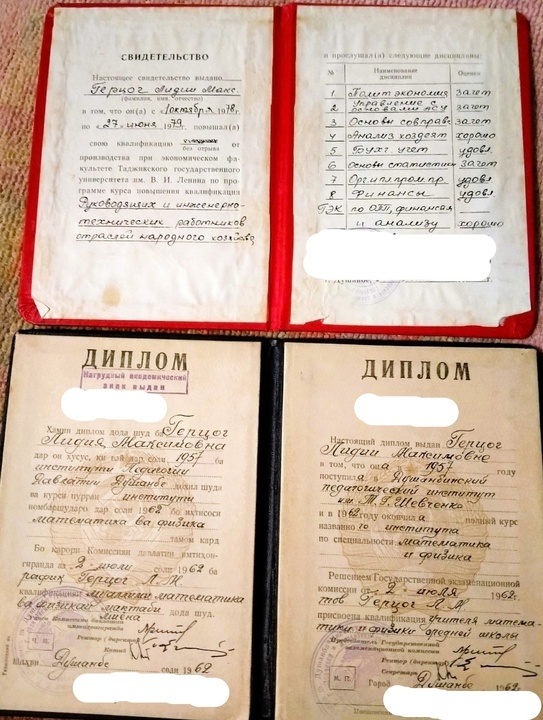 СВИДЕТЕЛЬСТВО
Настоящее свидетельство выдано
Герцог Лидии Макс.
(фамилия, имя, отчество)
в том, что он(а) с «1 октября 1978г.
по «27» июня 1979 г. повышал(а)
свою квалификацию от
без отрыва
производства при экономическом фа-
культете Таджикского государственного
университета им. В. И. Ленина по про-
грамме курса повышения квалификации
Руководящих и инженерно-
технических работников
отраслей народного хозяйства
и прослушал(а) следующие дисциплины:
№ Наименование дисциплин Оценки
1 Политэкономия зачет
2 Управление с АСУ зачет
3 Основы совправа зачет
4 Анализ хоздеят хорошо
5 Бухг. учет удовл.
6 Основы статистики зачет
7 Орг.пл.пром.пр. удовл
8 Финансы удовл.
ГЭК по финансам
и анализу хорошо
ДИПЛОМ
Нагрудный академический
знак выдан
Хамин диплом дода шуд ба Герцог
Лидия Максимовна
дар он хусус, ки вай дар соли 1957 ба
институти Педагогии
Давлатии Душанбе дохил шуда
ва курси пурраи институти
номбаршударо дар соли 1962 бо ихтисоси
математика ва физика
тамом кард
Бо қарори Комиссияи давлатии имтиҳон-
гиранда аз 2 июли соли 1962 ба
рафиқ Герцог Л. М.
квалификацияи муаллими математика
ва физикаи мактаби
миёна дода шуд.
Ректор (директор)
Котиб
Шаҳри Душанбе соли 1962
ДИПЛОМ
Настоящий диплом выдан Герцог
Лидии Максимовне
в том, что она в 1957 году
поступила в Душанбинский
педагогический институт
им. Т. Г. Шевченко
и в 1962 году окончила полный курс
названного института
по специальности математика
и физика
Решением Государственной экзаменационной
комиссии от 2 июля 1962 г.
тов Герцог Л. М.
присвоена квалификация учителя матема-
тики и физики средней школы
Председатель Государственной
экзаменационной комиссии
Ректор (директор)
Секретарь
М. П.
Город Душанбе 1962 г.